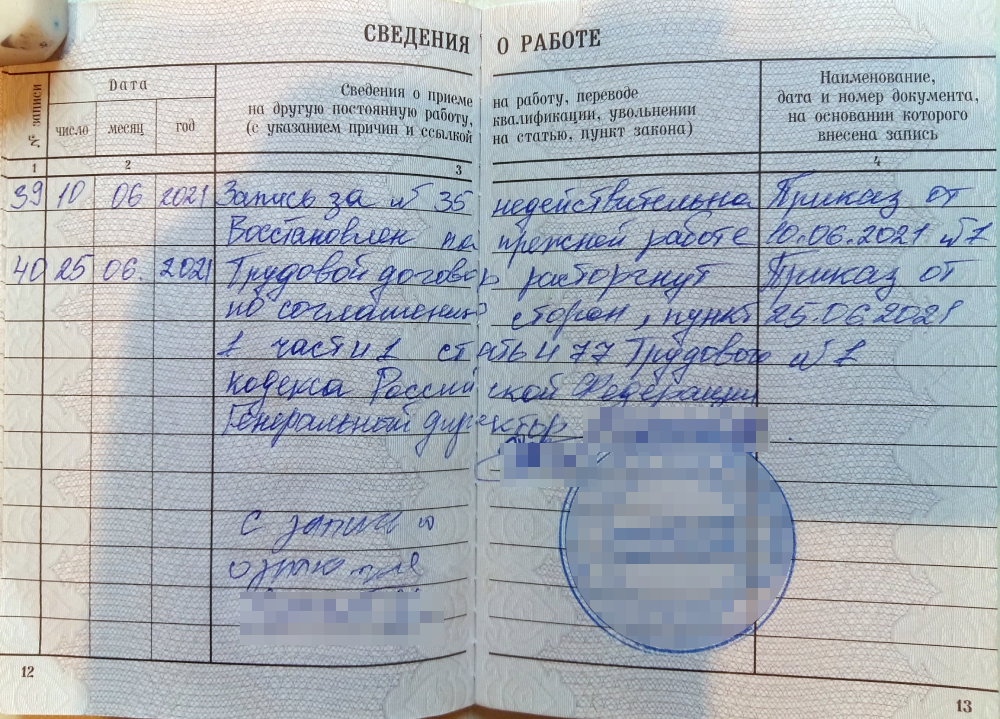 СВЕДЕНИЯ О РАБОТЕ
№ записи
Дата
число
месяц
год
Сведения о приеме на работу, переводе
на другую постоянную работу, квалификации, увольнении
(с указанием причин и ссылкой на статью, пункт закона)
Наименование,
дата и номер документа,
на основании которого
внесена запись
1 2 3 4
39 10 06 2021 Запись за № 35 недействительна Приказ от
Восстановлен на прежней работе 10.06.2021 №1
40 25 06. 2021 Трудовой договор расторгнут Приказ от
по соглашению сторон, пункт 25.06.2021
1 части 1 статьи 77 Трудового №1
кодекса Российской Федерации
Генеральный директор
с записью
12
13